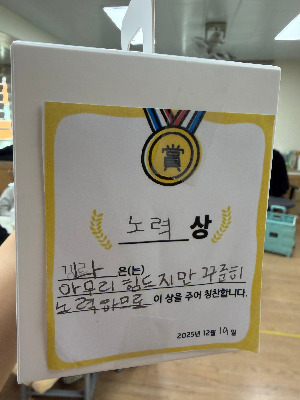 賞
노력 상
은(는)
아무리 힘드지만 꾸준히
노력하므로 이 상을 주어 칭찬합니다.
2025년 12월 19일